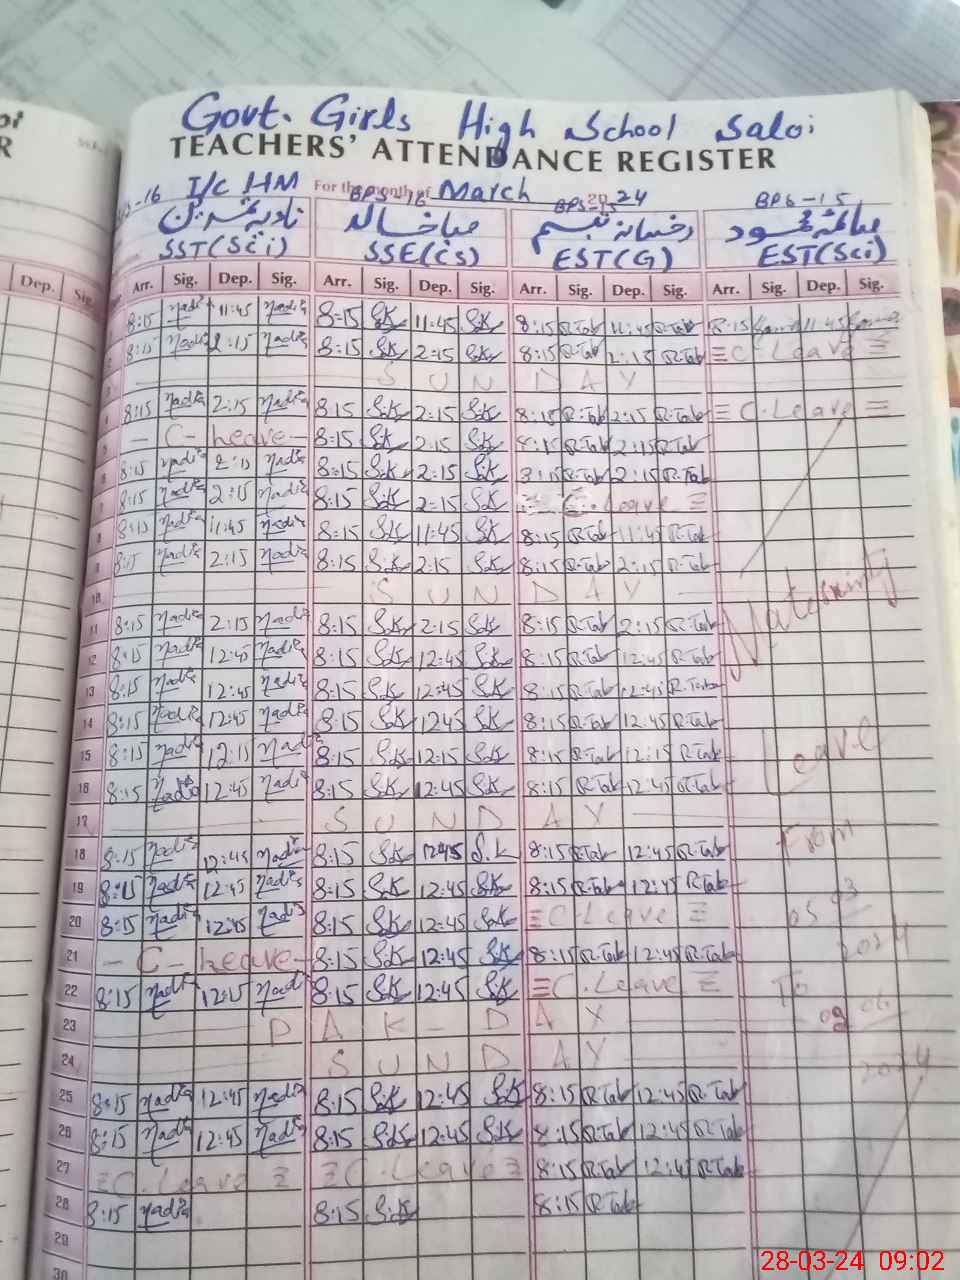 Govt. Girls High School Saloi
TEACHERS' ATTENDANCE REGISTER
I/C HM For the month of March 2024
BPS-16 BPS-15
صبا خالد رخسانہ تبسم
SST(Sci) SSE(CS) EST(G) EST(Sci)
Dep. Sig. Arr. Sig. Dep. Sig. Arr. Sig. Dep. Sig. Arr. Sig. Dep. Sig. Arr. Sig. Dep. Sig.
8:15 Nadia 11:45 Nadia 8:15 S.K 11:45 S.K 8:15 R.Tab 11:45 R.Tab 8:15 11:45
8:15 Nadia 2:15 Nadia 8:15 S.K 2:15 S.K 8:15 R.Tab 2:15 R.Tab C-Leave
SUNDAY
8:15 Nadia 2:15 Nadia 8:15 S.K 2:15 S.K 8:15 R.Tab 2:15 R.Tab C.Leave
C-Leave 8:15 S.K 2:15 S.K 8:15 R.Tab 2:15 R.Tab
8:15 Nadia 2:15 Nadia 8:15 S.K 2:15 S.K 8:15 R.Tab 2:15 R.Tab
8:15 Nadia 2:15 Nadia 8:15 S.K 2:15 S.K C.Leave
8:15 Nadia 11:45 Nadia 8:15 S.K 11:45 S.K 8:15 R.Tab 11:45 R.Tab
8:15 Nadia 2:15 Nadia 8:15 S.K 2:15 S.K 8:15 R.Tab 2:15 R.Tab
10 SUNDAY
11 8:15 Nadia 2:15 Nadia 8:15 S.K 2:15 S.K 8:15 R.Tab 2:15 R.Tab
12 8:15 Nadia 12:45 Nadia 8:15 S.K 12:45 S.K 8:15 R.Tab 12:45 R.Tab
13 8:15 Nadia 12:45 Nadia 8:15 S.K 12:45 S.K 8:15 R.Tab 12:45 R.Tab
14 8:15 Nadia 12:45 Nadia 8:15 S.K 1245 S.K 8:15 R.Tab 12:45 R.Tab
15 8:15 Nadia 12:15 Nadia 8:15 S.K 12:15 S.K 8:15 R.Tab 12:15 R.Tab
16 8:15 Nadia 12:45 Nadia 8:15 S.K 12:45 S.K 8:15 R.Tab 12:45 R.Tab
17 SUNDAY
18 8:15 Nadia 12:45 Nadia 8:15 S.K 1245 S.K 8:15 R.Tab 12:45 R.Tab
19 8:15 Nadia 12:45 Nadia 8:15 S.K 12:45 S.K 8:15 R.Tab 12:45 R.Tab
20 8:15 Nadia 12:45 Nadia 8:15 S.K 12:45 S.K C-Leave
21 C-Leave 8:15 S.K 12:45 S.K 8:15 R.Tab 12:45 R.Tab
22 8:15 Nadia 12:15 Nadia 8:15 S.K 12:45 S.K C.Leave
23 PAK-DAY
24 SUNDAY
25 8:15 Nadia 12:45 Nadia 8:15 S.K 12:45 S.K 8:15 R.Tab 12:45 R.Tab
26 8:15 Nadia 12:45 Nadia 8:15 S.K 12:45 S.K 8:15 R.Tab 12:45 R.Tab
27 C.Leave C.Leave 8:15 R.Tab 12:45 R.Tab
28 8:15 Nadia 8:15 S.K 8:15 R.Tab
29
30
Maternity
Leave
From
05 03
2024
To
06
2024
28-03-24 09:02